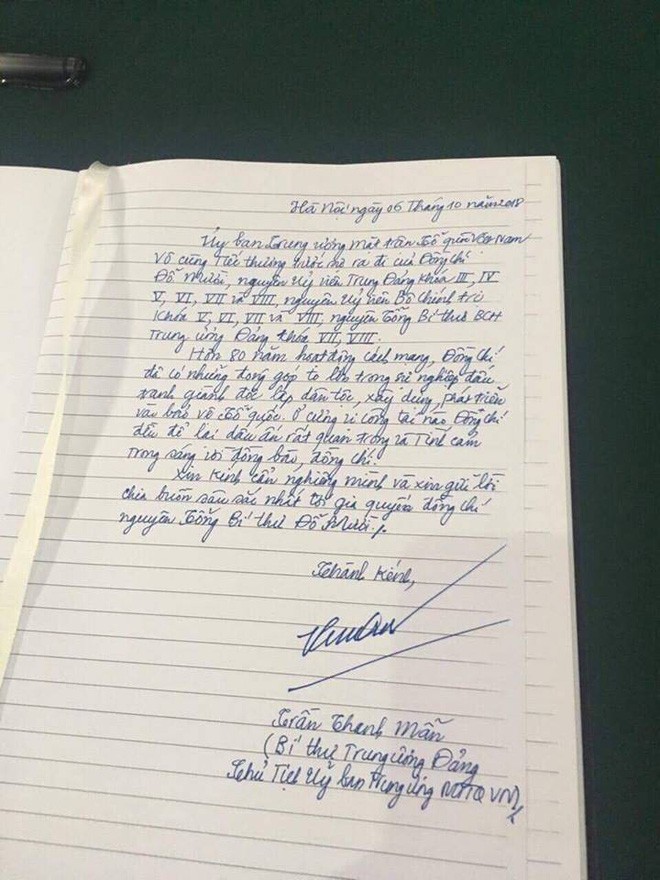 Hà Nội ngày 06 Tháng 10 năm 2018
Ủy ban Trung ương mặt trận Tổ quốc Việt Nam
vô cùng Tiếc thương trước sự ra đi của Đồng chí
Đỗ Mười, nguyên Uỷ viên Trung Đảng khóa III, IV
V, VI, VII và VIII, nguyên Uỷ viên Bộ chính trị
Khóa V, VI, VII và VIII, nguyên Tổng Bí thư BCH
Trung ương Đảng khóa VII, VIII.
Hơn 80 năm hoạt động cách mạng, Đồng chí
đã có những đóng góp to lớn trong sự nghiệp đấu
tranh giành độc lập dân tộc, xây dựng, phát triển
vào bảo vệ Tổ quốc. Ở cương vị công tác nào Đồng chí
đều để lại dấu ấn rất quan trọng và Tình cảm
trong sáng với đồng bào, đồng chí.
Xin Kính cẩn nghiêng mình và xin gửi lời
chia buồn sâu sắc nhất tới gia quyến đồng chí
nguyên Tổng Bí thư Đỗ Mười./.
Thành Kính,
Trần Thanh Mẫn
(Bí thư Trung ương Đảng
Chủ Tịch Uỷ ban Trung ương MTTQ VN)